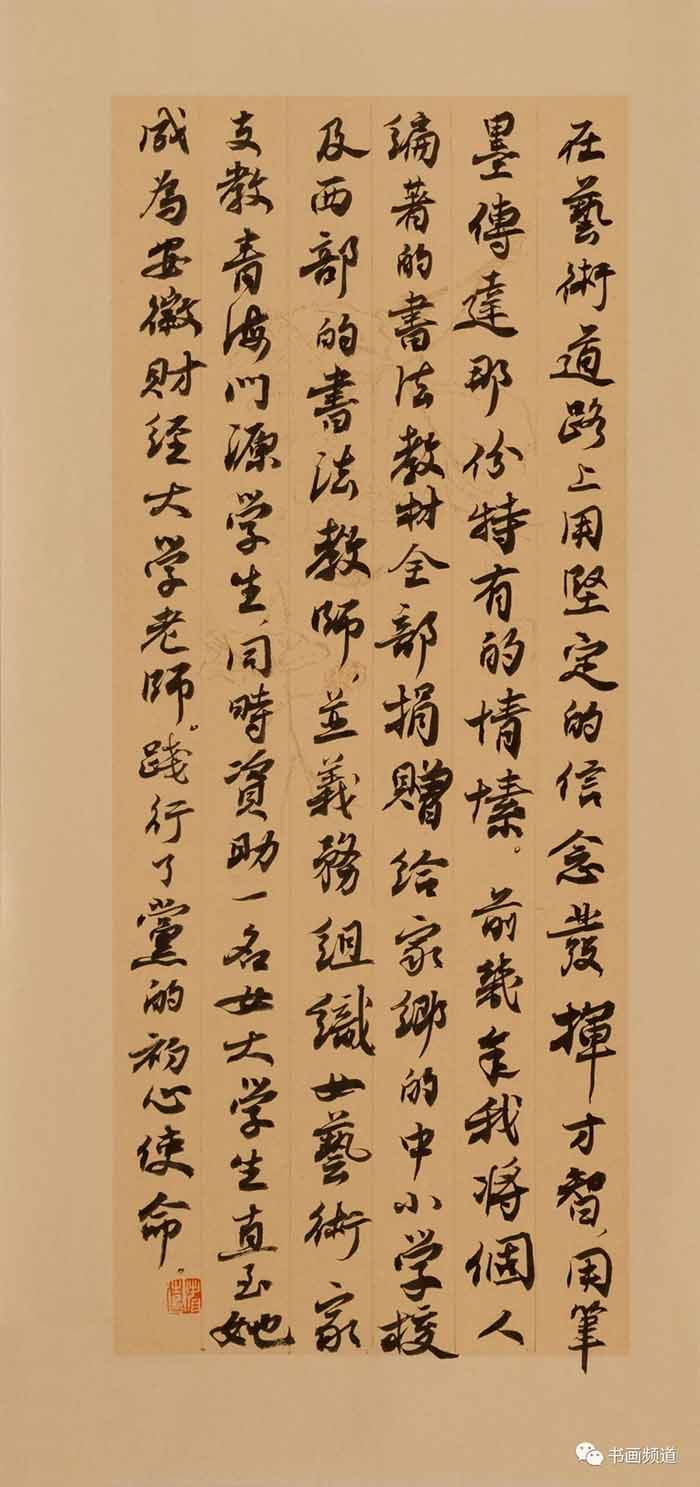 在藝術道路上用堅定的信念發揮才智、用筆
墨傳達那份特有的情愫。前幾年我將個人
編著的書法教材全部捐贈給家鄉的中小学校
及西部的書法教師、並義務組織女藝術家
支教青海门源学生、同時資助一名女大学生直至她
成為安徽財经大学老師。踐行了黨的初心使命。
书画频道